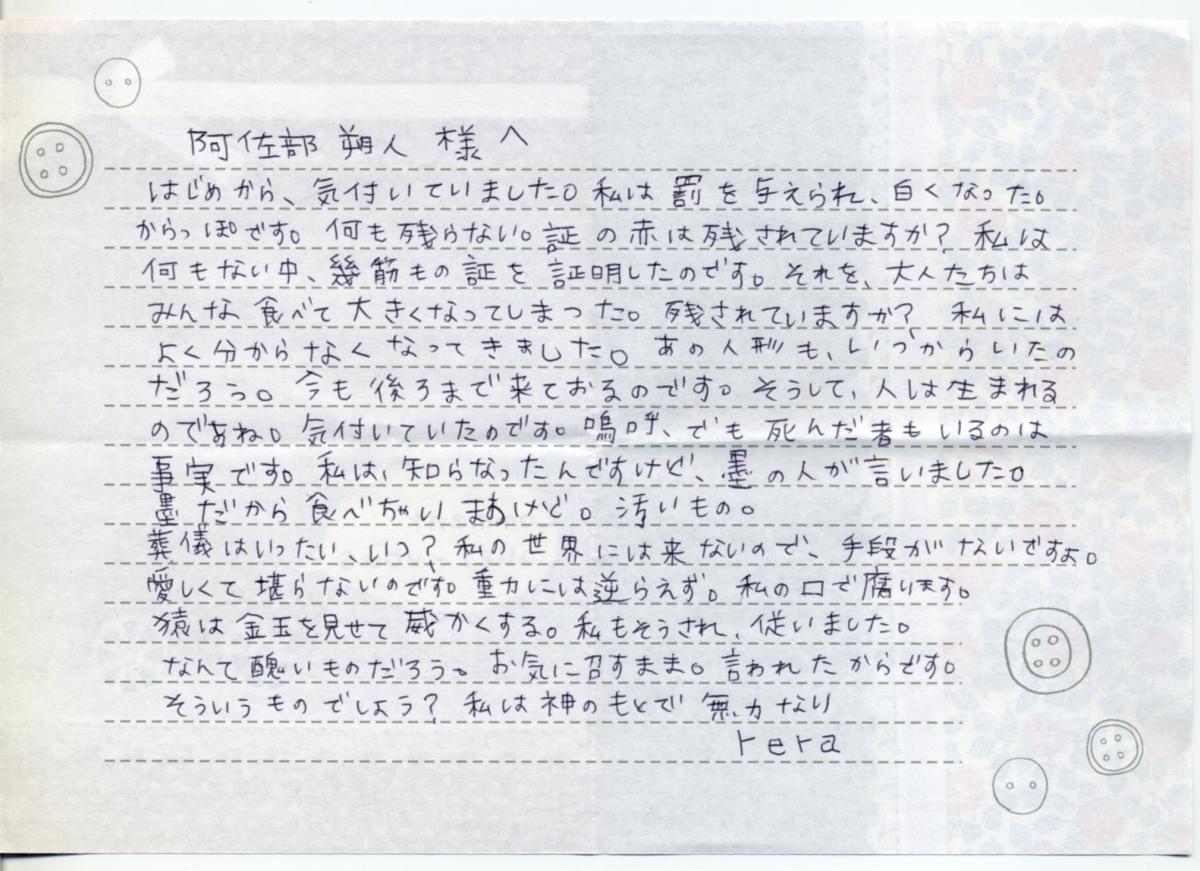 阿佐部 朔人 様へ
はじめから、気付いていました。私は罰を与えられ、白くなった。
からっぽです。何も残らない。証の赤は残されていますか？ 私は
何もない中、幾筋もの証を証明したのです。それを、大人たちは
みんな食べて大きくなってしまった。残されていますか？ 私には
よく分からなくなってきました。あの人形も、いつからいたの
だろう。今も後ろまで来ておるのです。そうして、人は生まれる
のであね。気付いていたのです。嗚呼、でも死んだ者もいるのは
事実です。私は、知らなったんですけど、墨の人が言いました。
墨だから食べちゃいまあけど。汚いもの。
葬儀はいったい、いつ？ 私の世界には来ないので、手段がないですよ。
愛しくて堪らないのです。重力には逆らえず。私の口で腐ります。
猿は金玉を見せて威かくする。私もそうされ、従いました。
なんて醜いものだろう。お気に召すまま。言われたからです。
そういうものでしょう？ 私は神のもとで 無力なり
rera